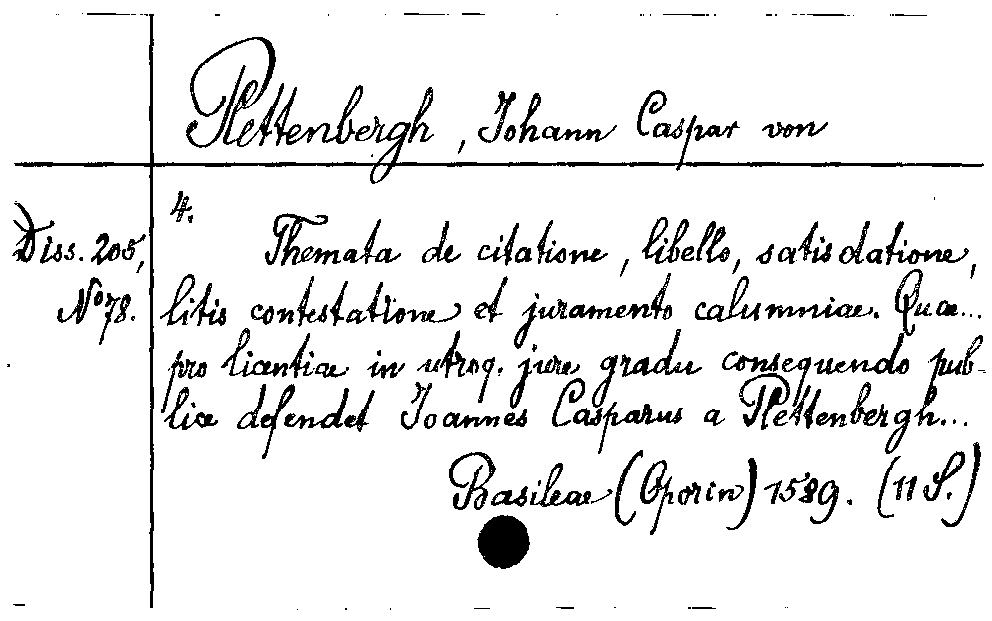 Plettenbergh, Johann Caspar von
4.
Diss. 205,
No 78.
Themata de citatione, libello, satisdatione,
litis contestatione et juramento calumniae. Quae...
pro licentiae in utroq. jure gradu consequendo pub-
lice defendet Joannes Casparus a Plettenbergh...
Basileae (Oporin) 1589. (11 S.)